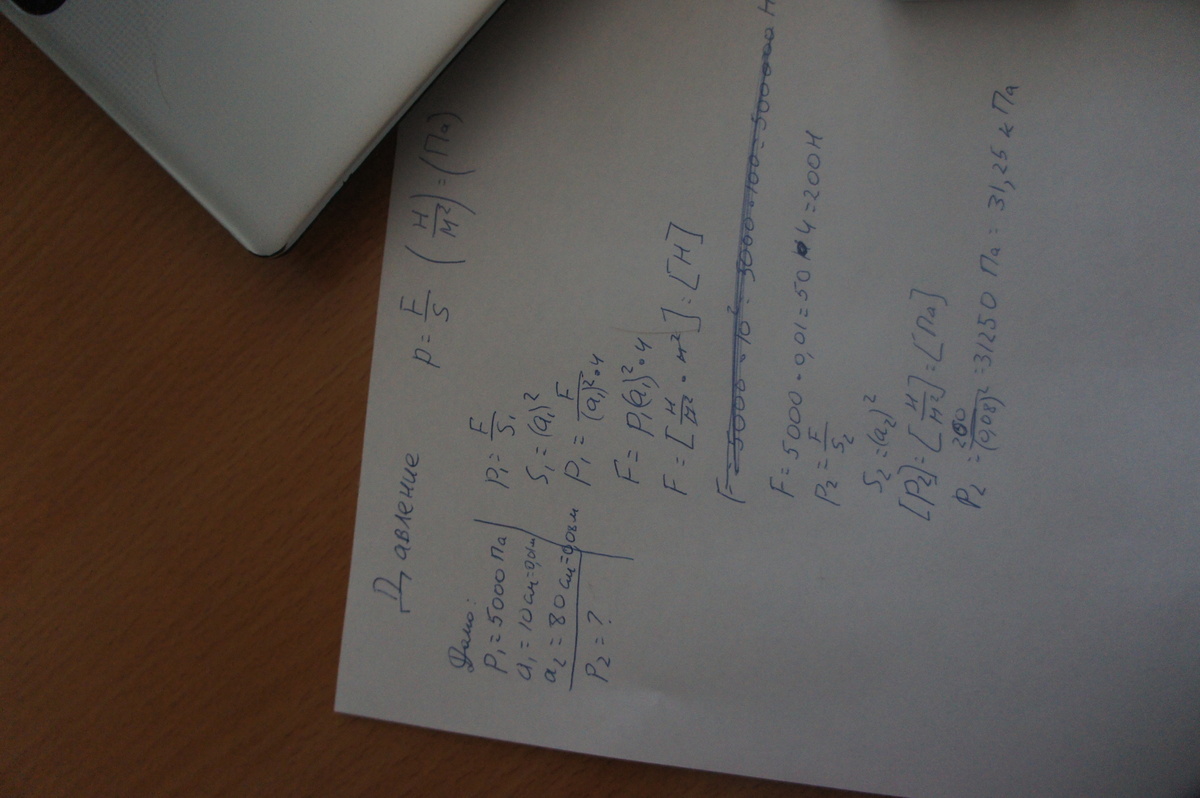 Давление p = F/S (Н/М²) = (Па)
Дано:
P₁ = 5000 Па
a₁ = 10 см = 0,01м
a₂ = 80 см = 0,08м
P₂ = ?
P₁ = F/S₁
S₁ = (a₁)²
P₁ = F/(a₁)²•4
F = P₁(a₁)²•4
F = [Н/м² • м²] = [Н]
F = 5000 • 10² = 5000 • 100 = 500000 Н
F = 5000 • 0,01 = 50 • 4 = 200Н
P₂ = F/S₂
S₂ = (a₂)²
[P₂] = [Н/М²] = [Па]
P₂ = 200/(0,08)² = 31250 Па = 31,25 кПа